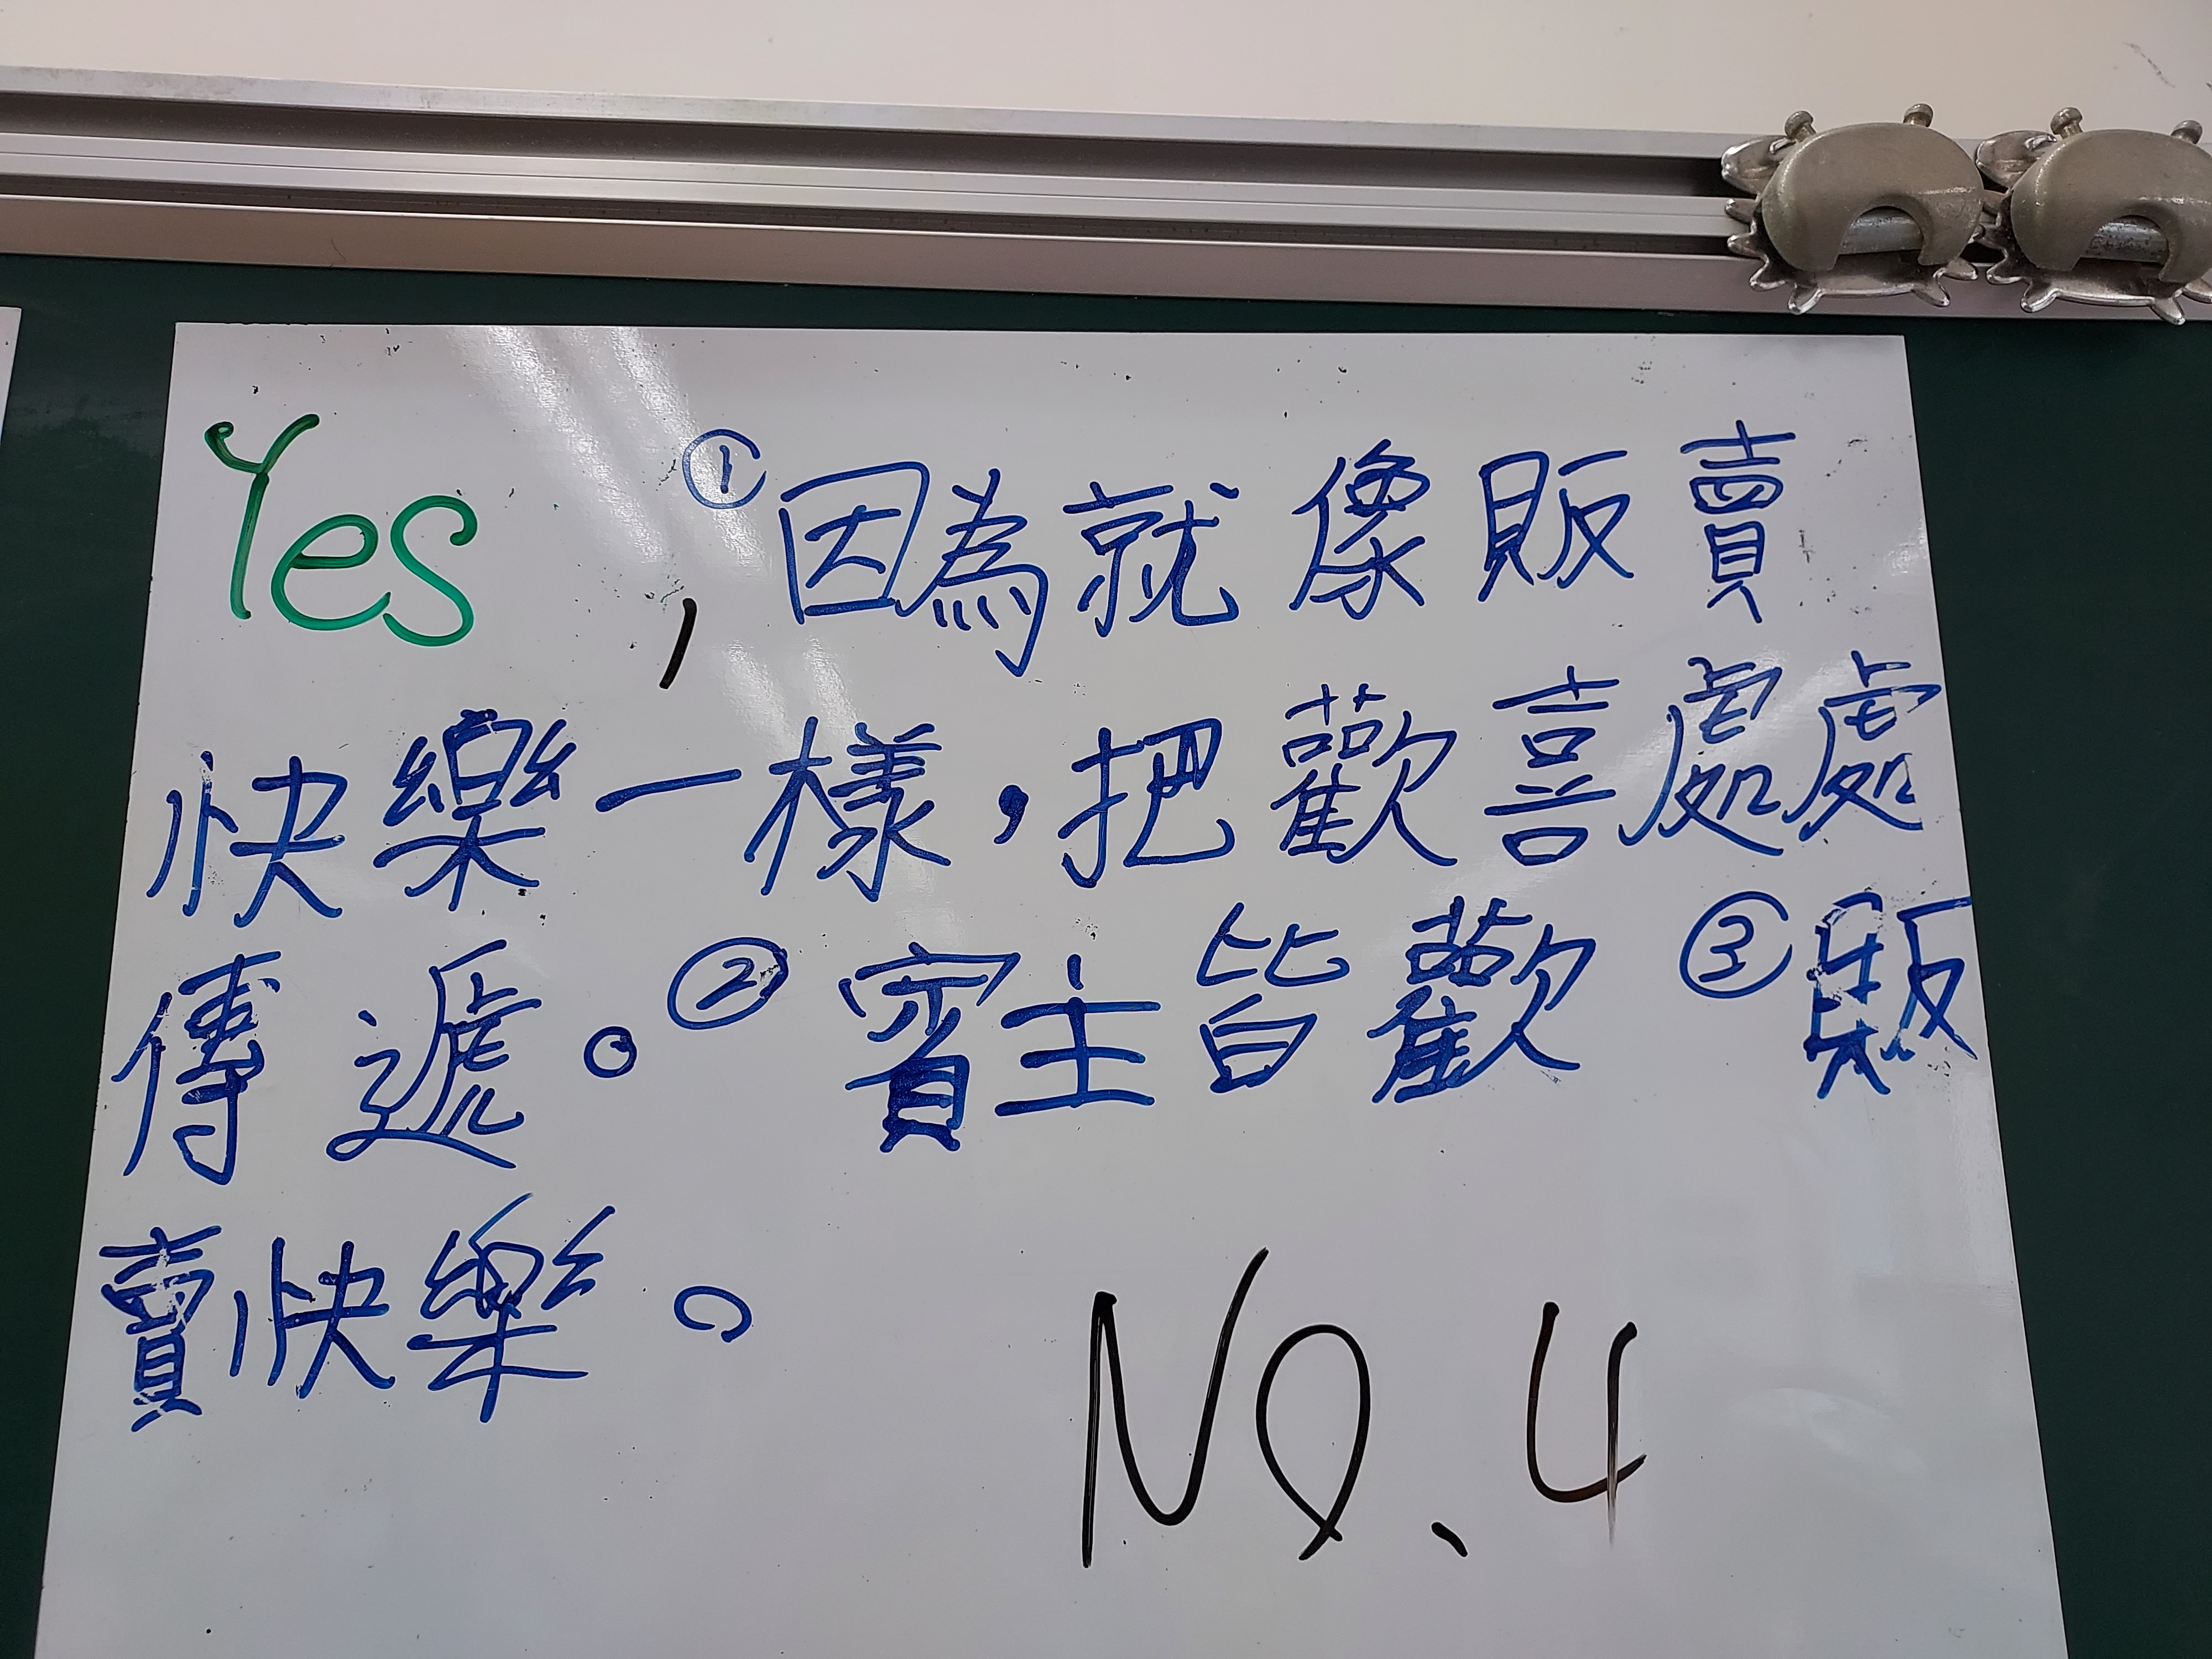 Yes, ①因為就像販賣
快樂一樣，把歡喜處處
傳遞。②賓主皆歡 ③販
賣快樂。
No.4